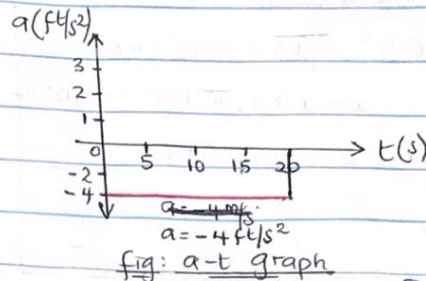 a(ft/s²)
3
2
1
0 5 10 15 20 t(s)
-2
-4
a = -4 m/s
a = -4 ft/s²
fig: a-t graph